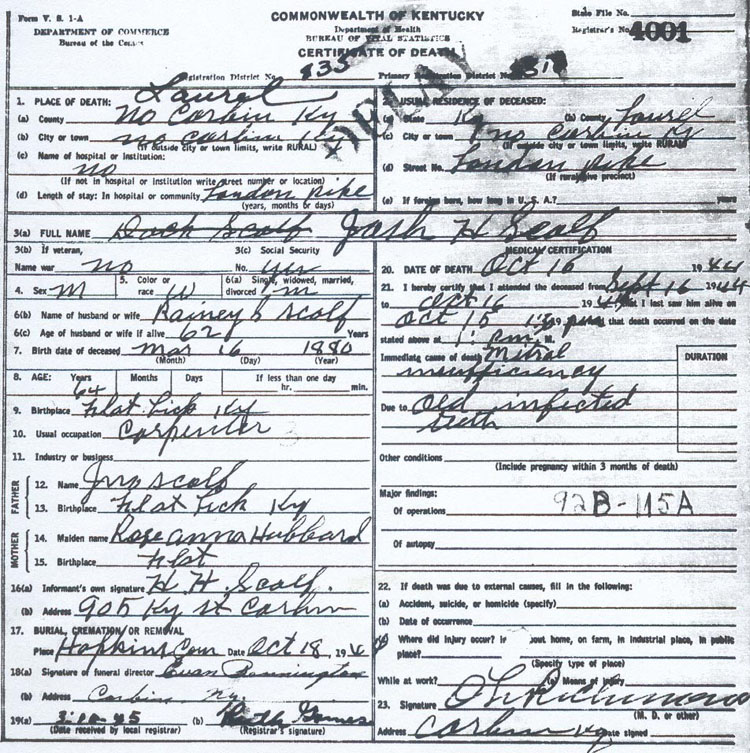 Form V. S. 1-A
COMMONWEALTH OF KENTUCKY
State File No.
DEPARTMENT OF COMMERCE
Department of Health
Registrar's No. 4001
Bureau of the Census
BUREAU OF VITAL STATISTICS
CERTIFICATE OF DEATH
Registration District No. 835
Primary Registration District No.
DELAY
1. PLACE OF DEATH: Laurel
(a) County No Corbin Ky
(b) City or town no Corbin Ky
(If outside city or town limits, write RURAL)
(c) Name of hospital or Institution:
no
(If not in hospital or institution write street number or location)
(d) Length of stay: In hospital or community London Pike
(years, months or days)
2. USUAL RESIDENCE OF DECEASED:
(a) State Ky (b) County Laurel
(c) City or town no Corbin Ky
(If outside city or town limits, write RURAL)
(d) Street No. London Pike
(If rural give precinct)
(e) If foreign born, how long in U. S. A.? years
3(a) FULL NAME Dock Scalf Josh H Scalf
3(b) If veteran,
Name war no
3(c) Social Security
No. yes
4. Sex M
5. Color or race W
6(a) Single, widowed, married, divorced m
6(b) Name of husband or wife Rainey S Scalf
6(c) Age of husband or wife if alive 62 Years
7. Birth date of deceased Mar 16 1880
(Month) (Day) (Year)
8. AGE: Years Months Days If less than one day
64 hr. min.
9. Birthplace Flat Lick Ky
10. Usual occupation Carpenter
11. Industry or business
FATHER
12. Name Jno Scalf
13. Birthplace Flat Lick Ky
MOTHER
14. Maiden name Rose Anna Hubbard
15. Birthplace Flat
16(a) Informant's own signature H. H. Scalf.
(b) Address 905 Ky St Corbin
17. BURIAL, CREMATION OR REMOVAL
Place Hopkins Cem Date Oct 18, 19
18(a) Signature of funeral director Evan Pennington
(b) Address Corbin Ky.
19(a) 3-10-45 (b) Ruth
(Date received by local registrar) (Registrar's signature)
MEDICAL CERTIFICATION
20. DATE OF DEATH Oct 16 1944
21. I hereby certify that I attended the deceased from Sept 16 1944
to Oct 16 1944 that I last saw him alive on
Oct 15 that death occurred on the date
stated above at 1 pm M.
Immediate cause of death Mitral
insufficiency
DURATION
Due to Old infected
teeth
Other conditions
(Include pregnancy within 3 months of death)
Major findings:
Of operations 92B-115A
Of autopsy
22. If death was due to external causes, fill in the following:
(a) Accident, suicide, or homicide (specify)
(b) Date of occurrence
Where did injury occur? in about home, on farm, in industrial place, in public
place?
(Specify type of place)
While at work? (e) Means of injury
23. Signature O L Richmond
(M. D. or other)
Address Corbin Ky Date signed